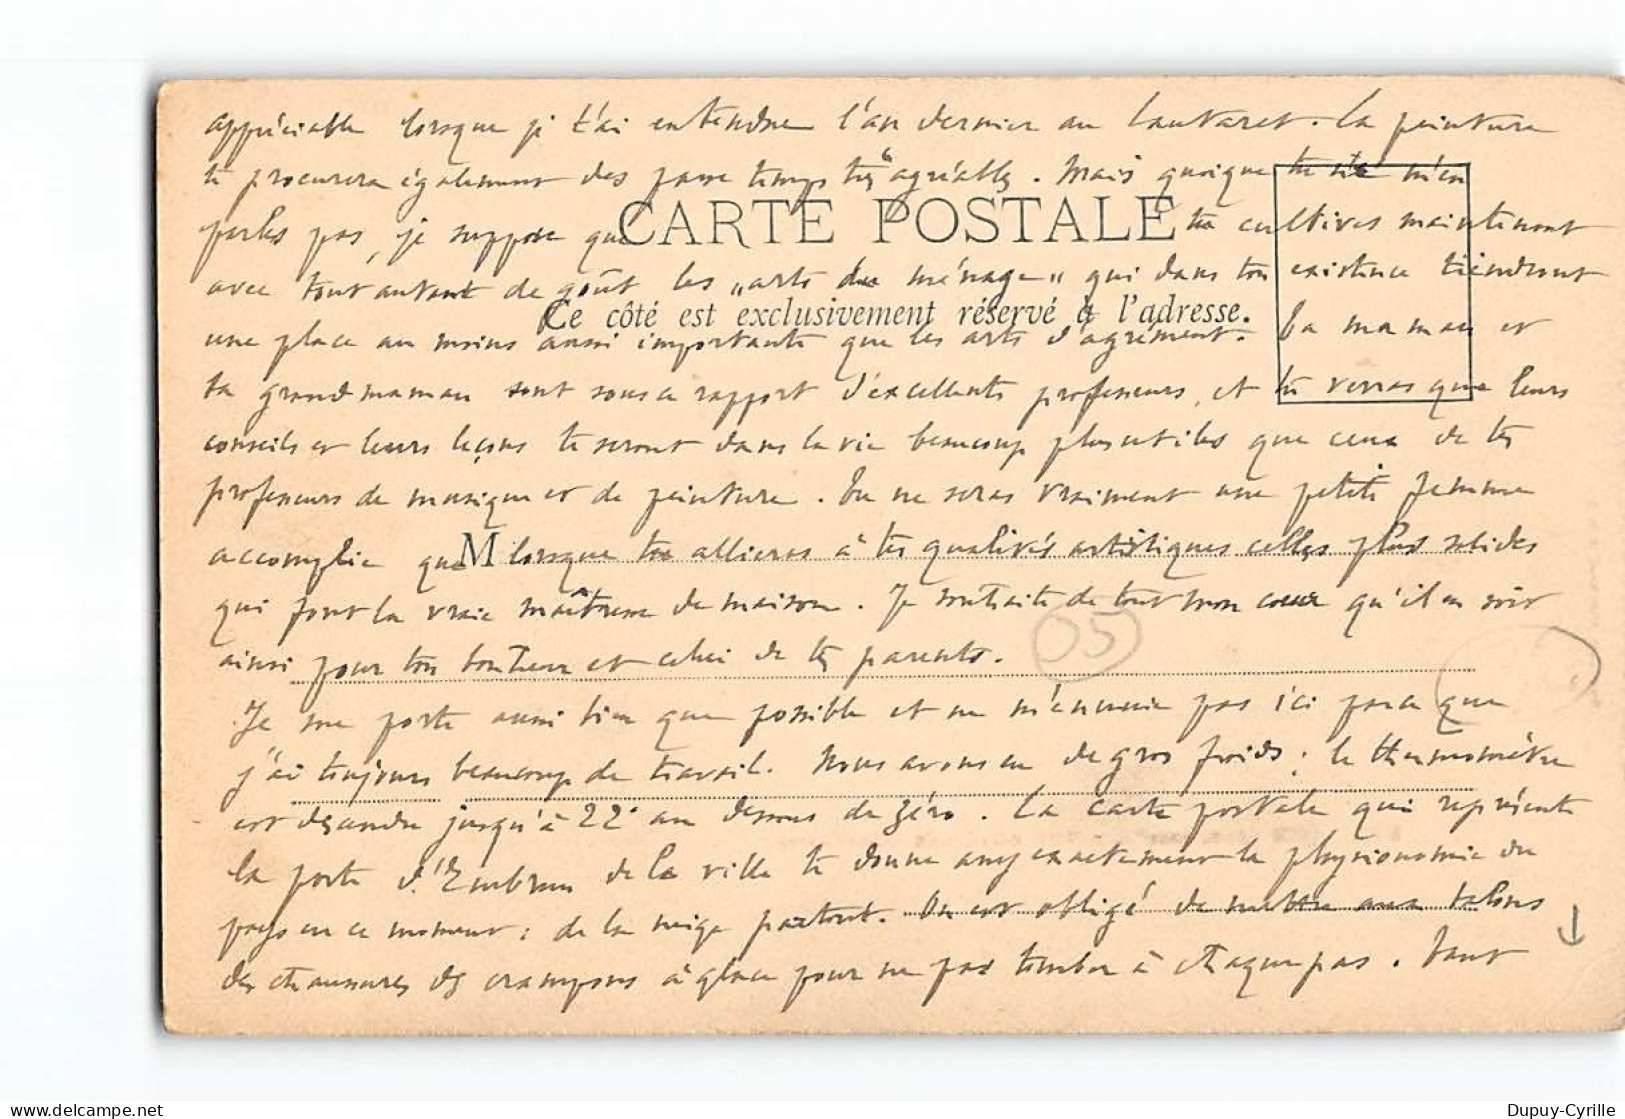 appréciable lorsque je t'ai entendue l'an dernier au Lautaret. La peinture
te procurera également des passe temps très agréables. Mais quoique tu ne m'en
parles pas, je suppose que tu cultives maintenant
CARTE POSTALE
avec tout autant de goût les "arts du ménage" qui dans ton existence tiendront
Ce côté est exclusivement réservé à l'adresse.
une place au moins aussi importante que les arts d'agrément. Ta maman et
ta grand maman sont sous ce rapport d'excellents professeurs, et tu verras que leurs
conseils et leurs leçons te seront dans la vie beaucoup plus utiles que ceux de tes
professeurs de musique et de peinture. Tu ne seras vraiment une petite femme
accomplie que lorsque tu allieras à tes qualités artistiques celles plus solides
M
qui font la vraie maîtresse de maison. Je souhaite de tout mon coeur qu'il en soit
ainsi pour ton bonheur et celui de tes parents.
05
Je me porte aussi bien que possible et ne m'ennuie pas ici parce que
j'ai toujours beaucoup de travail. Nous avons eu de gros froids ; le thermomètre
est descendu jusqu'à 22° au dessous de zéro. La carte postale qui représente
la porte d'Embrun de la ville te donne assez exactement la physionomie du
pays en ce moment : de la neige partout. On est obligé de mettre aux talons
des chaussures des crampons à glace pour ne pas tomber à chaque pas. Tout
Dupuy-Cyrille